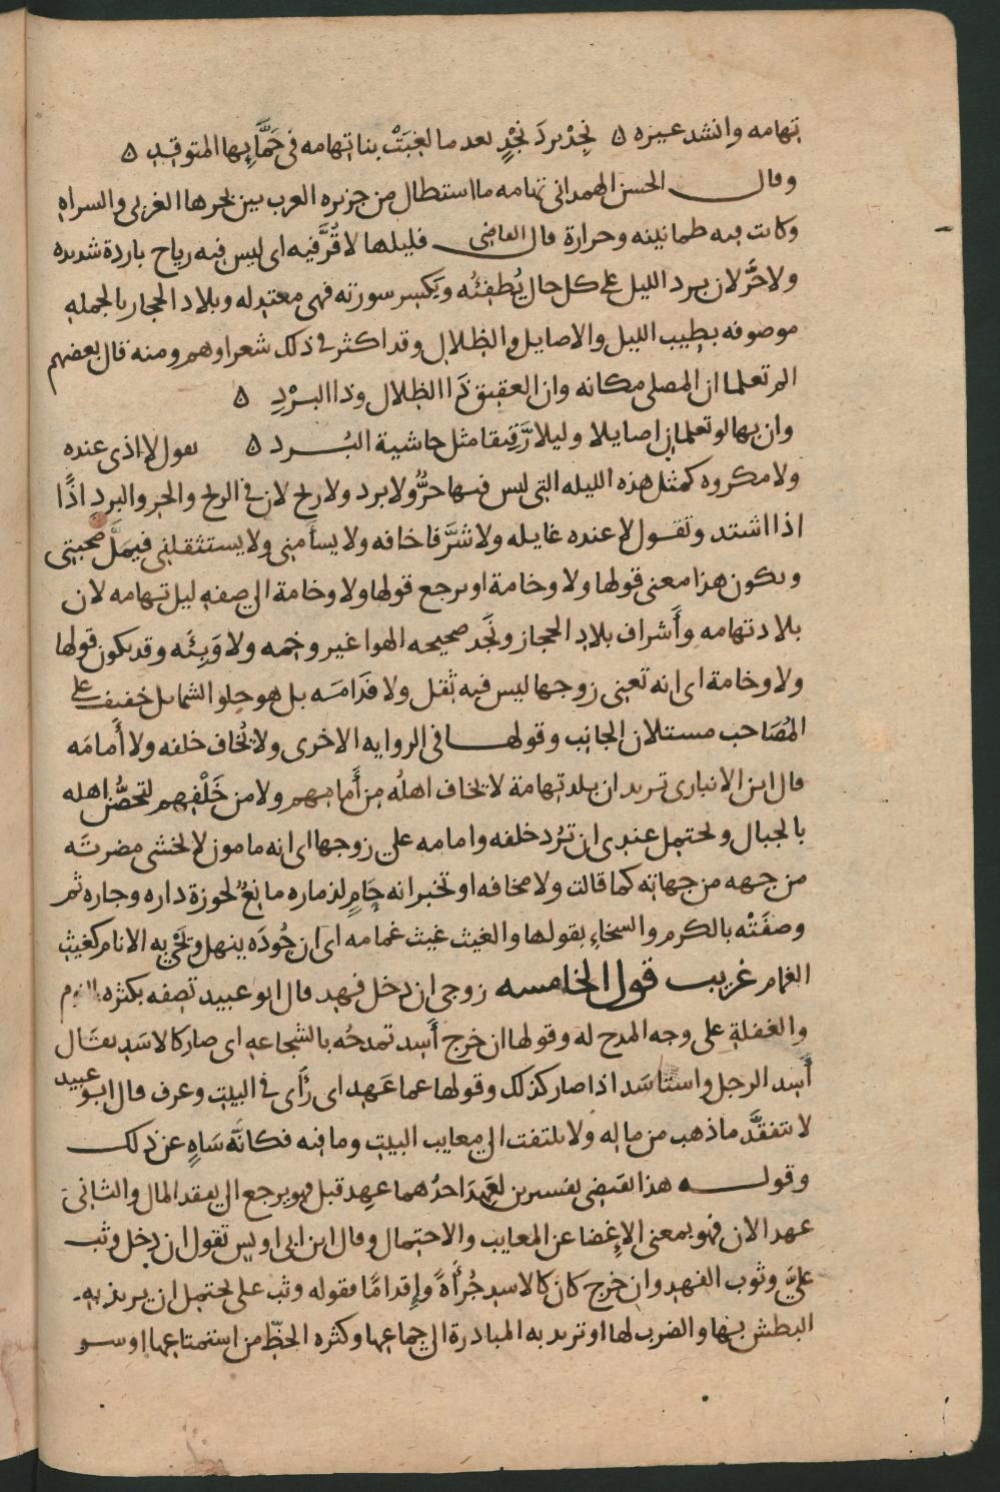 تهامه وانشد عيره ه نجِدْ بردَ نجْدٍ بعد ما لعِبَتْ بنا تهامه فى حَمَّامِها المتوقِدِ ه
وقال الحسن الهمدانى تهامه ما استطال من جزيره العرب بين بحرها الغربى والسراه
وكانت فيه طمانينه وحرارة قال القاضى فليلها لا قُرَّ فيه اى ليس فيه رياح باردة شديده
ولا حَرَّ لان برد الليل على كل حال يُطفئُه ويَكسِر سورته فهى معتدله وبلاد الحجاز بالجمله
موصوفه بطيب الليل والاصايل والظلال وقد اكثر فى ذلك شعراوهم ومنه قال بعضهم
الم تعلما ان المصلى مكانه وان العقيق ذَا الظلال وذا البرْدِ ه
وان بها لو تعلمان اصايلا وليلا رَّقِيقا مثل حاشية البُرد ه تقول لا اذى عنده
ولا مكروه كمثل هذه الليله التى ليس فيها حرٌّ ولا برد ولا ريح لان فى الريح والحر والبرد اذًا
اذا اشتد وتقول لا عنده غايله ولا شرَّ فاخافه ولا يسأمنى ولا يستثقلنى فيمَلَّ صحبتى
ويكون هذا معنى قولها ولا وخامة او يرجع قولها ولا وخامة الى صفه ليل تهامه لان
بلاد تهامه وأشراف بلاد الحجاز ونَجد صحيحه الهوا غير وخِمه ولا وَبِئَه وقد يكون قولها
ولا وخامة اى انه تعنى زوجها ليس فيه ثقل ولا فَدَامَه بل هو حلو الشمائل خفيف على
المُصَاحب مستلان الجانب وقولها فى الروايه الاخرى ولا يُخاف خلفه ولا أَمامَه
قال ابن الانبارى تريد ان بلد تهامة لا يخاف اهلُه من أَمامهم ولا من خَلْفِهم لتحصُّن اهله
بالجبال ويحتمل عندى ان تَرُد خلفه وامامه على زوجها اى انه مامون لا يخشى مضرته
من جهه من جهاته كما قالت ولا مخافه او تخبر انه حَامٍ لذماره مانعٌ لحوزة داره وجاره ثم
وصفَتْه بالكرم والسخاءِ بقولها والغيث غيث غمامه اى ان جُودَه ينهل ويَحْيى به الانام كغيث
الغمام غريب قول الخامسه زوجى ان دخل فهد قال ابو عبيد تصفه بكثره النوم
والغفلةِ على وجه المدح له وقولها ان خرج أَسِد تمدحُه بالشجاعه اى صار كالاسَدِ يقال
أَسِد الرجل واستأسَد اذا صار كذلك وقولها عما عَهِد اى رَأى فى البيت وعرف قال ابو عبيد
لا يتفقَّد ما ذهب من ماله ولا يلتفت الى معايب البيت وما فيه فكانّه سَاهٍ عن ذلك
وقوله هذا يقتضى تفسيرين لعَهِدَ احدُهما عهِد قبل فهو يرجع الى تفقد المال والثانى
عهد الان فهو بمعنى الإِغضا عن المعايب والاحتمال وقال ابن ابى اويس تقول ان دخل وثب
علىَّ وثوب الفهد وان خرج كان كالاسد جُرأَةً وإِقدامًا فقوله وثب على يحتمل ان يريد به
البطش بها والضرب لها او تريد به المبادرة الى جماعها وكثره الحظّ من استمتاعها او سو